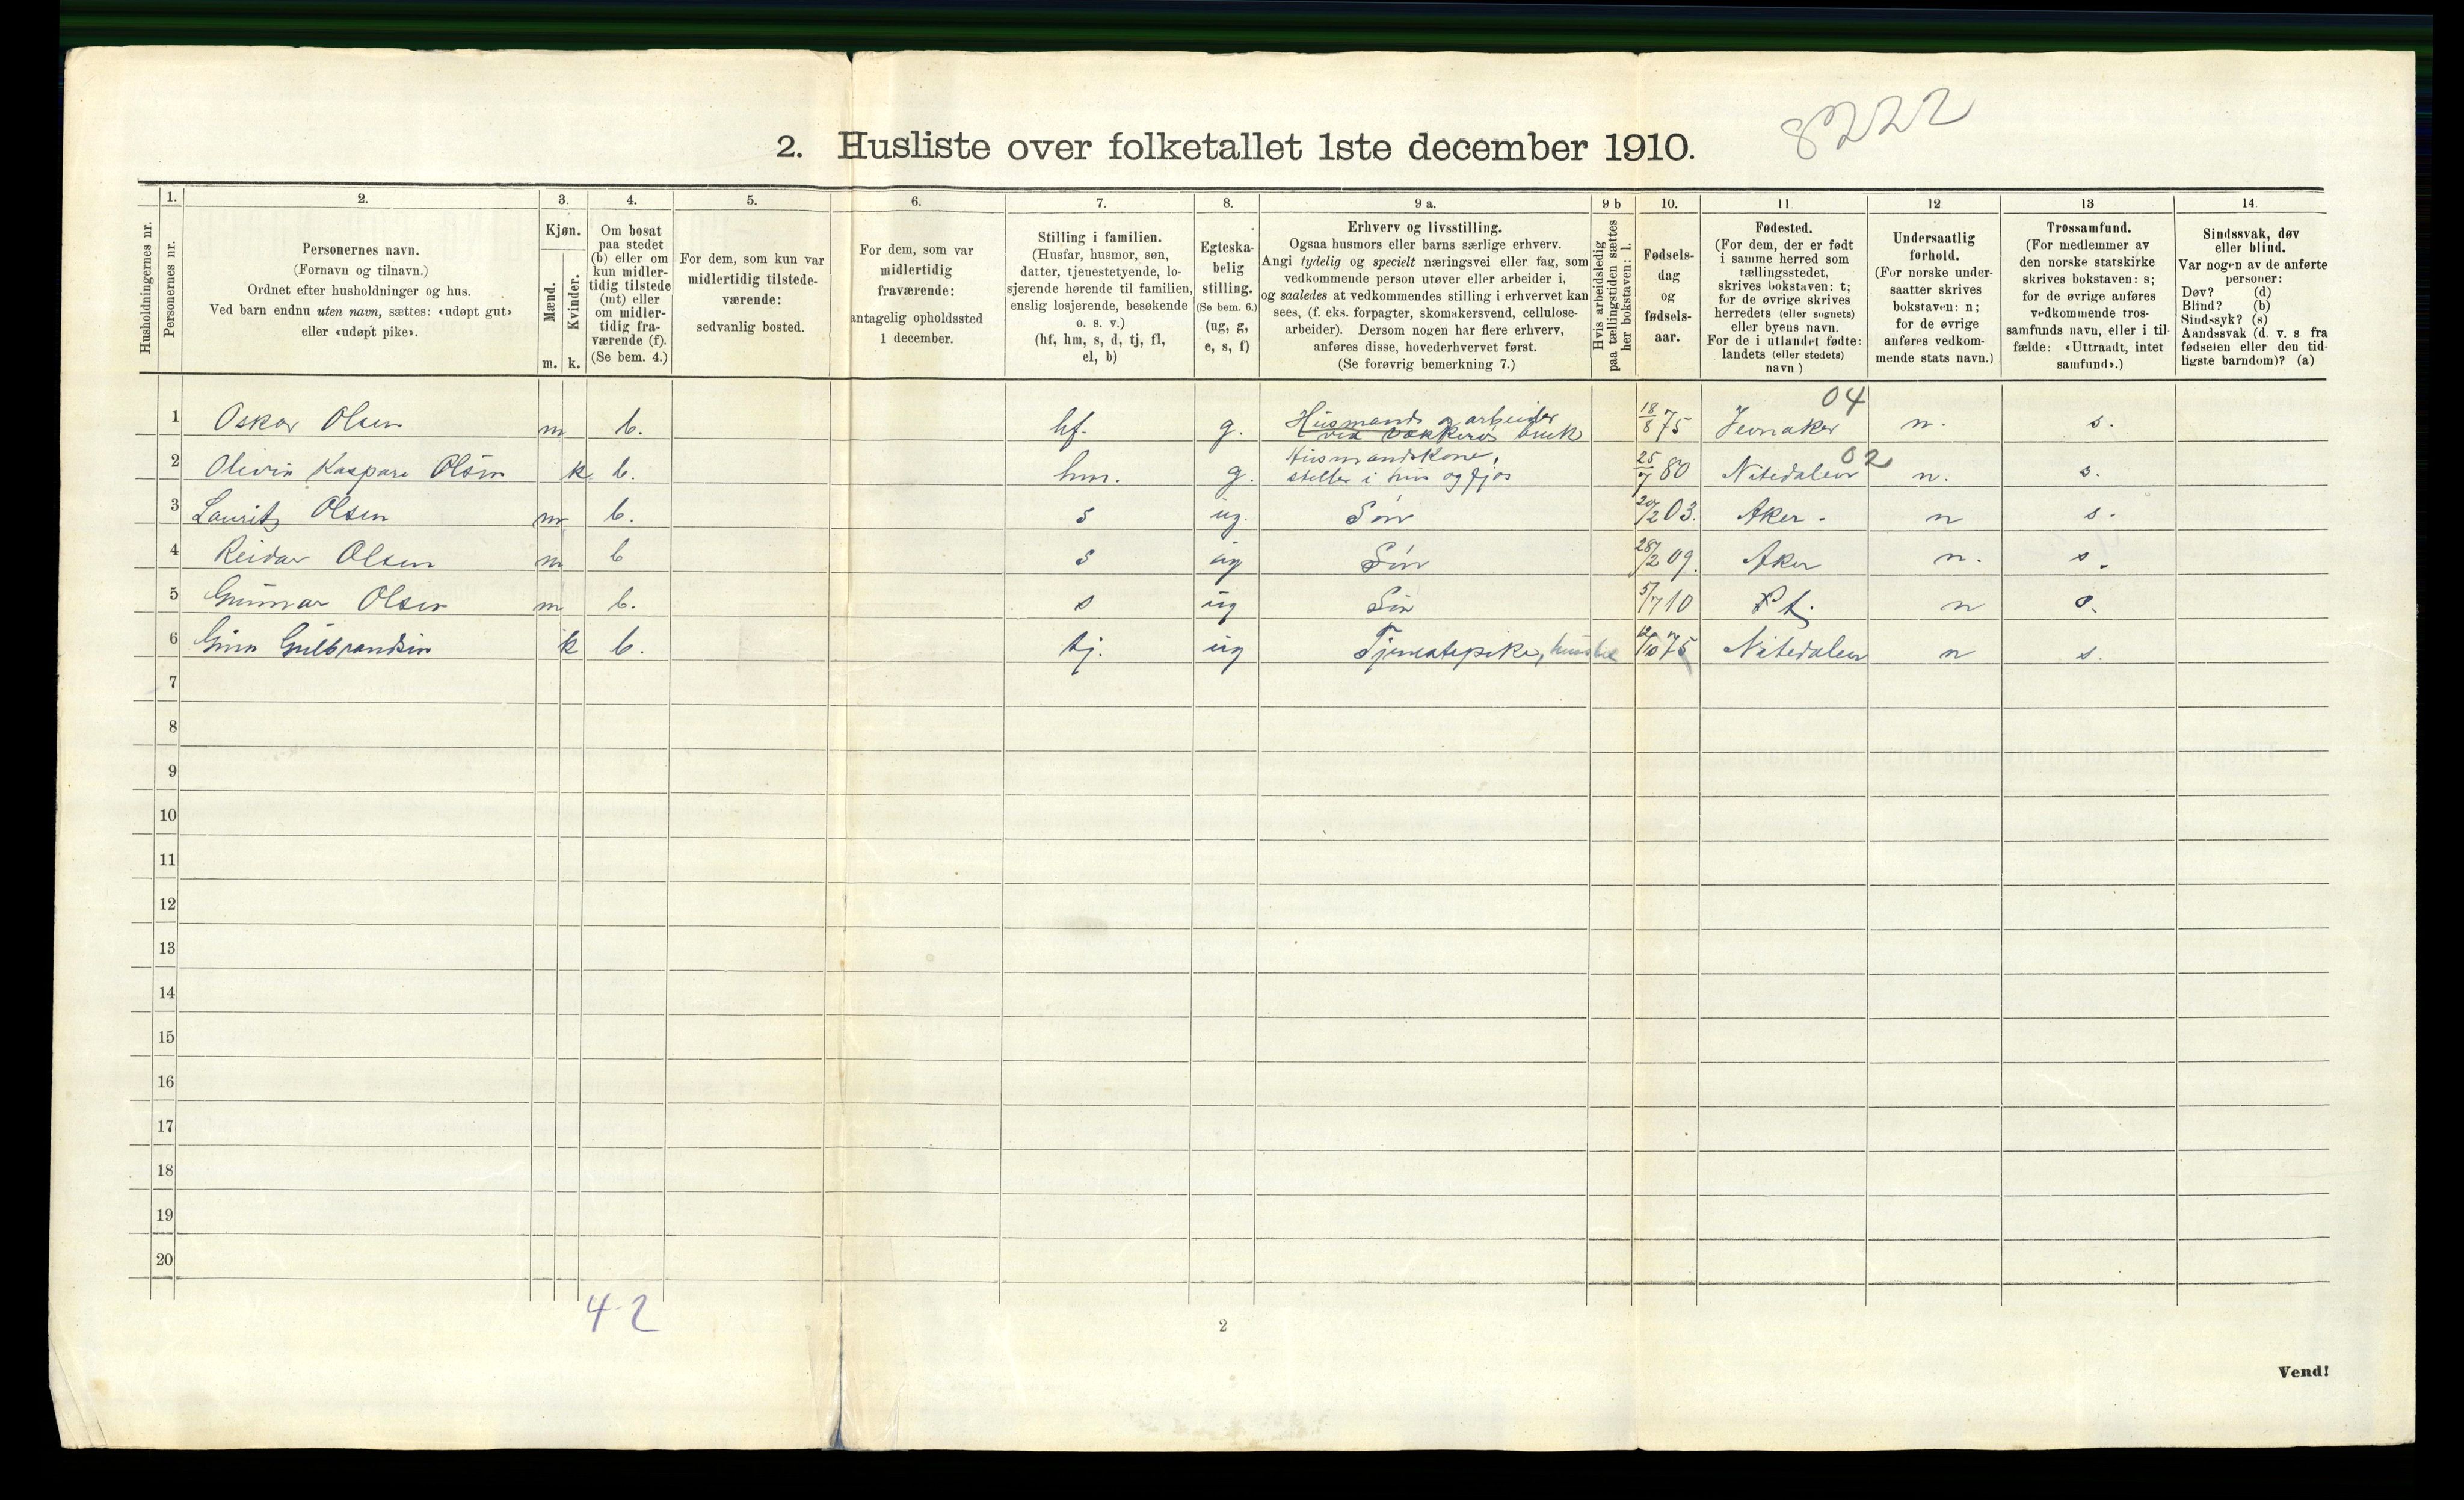 8222
2. Husliste over folketallet 1ste december 1910.
Husholdningernes nr.
1.
Personernes nr.
2.
Personernes navn.
(Fornavn og tilnavn.)
Ordnet efter husholdninger og hus.
Ved barn endnu uten navn, sættes: «udøpt gut»
eller «udøpt pike».
3.
Kjøn.
Mænd.
m.
Kvinder.
k.
4.
Om bosat
paa stedet
(b) eller om
kun midler-
tidig tilstede
(mt) eller
om midler-
tidig fra-
værende (f).
(Se bem. 4.)
5.
For dem, som kun var
midlertidig tilstede-
værende:
sedvanlig bosted.
6.
For dem, som var
midlertidig
fraværende:
antagelig opholdssted
1 december.
7.
Stilling i familien.
(Husfar, husmor, søn,
datter, tjenestetyende, lo-
sjerende hørende til familien,
enslig losjerende, besøkende
o. s. v.)
(hf, hm, s, d, tj, fl,
el, b)
8.
Egteska-
belig
stilling.
(Se bem. 6.)
(ug, g,
e, s, f)
9 a.
Erhverv og livsstilling.
Ogsaa husmors eller barns særlige erhverv.
Angi tydelig og specielt næringsvei eller fag, som
vedkommende person utøver eller arbeider i,
og saaledes at vedkommendes stilling i erhvervet kan
sees, (f. eks. forpagter, skomakersvend, cellulose-
arbeider). Dersom nogen har flere erhverv,
anføres disse, hovederhvervet først.
(Se forøvrig bemerkning 7.)
9 b
Hvis arbeidsledig
paa tællingstiden sættes
her bokstaven: l.
10.
Fødsels-
dag
og
fødsels-
aar.
11
Fødested.
(For dem, der er født
i samme herred som
tællingsstedet,
skrives bokstaven: t;
for de øvrige skrives
herredets (eller sognets)
eller byens navn.
For de i utlandet fødte:
landets (eller stedets)
navn )
12
Undersaatlig
forhold.
(For norske under-
saatter skrives
bokstaven: n;
for de øvrige
anføres vedkom-
mende stats navn.)
13
Trossamfund.
(For medlemmer av
den norske statskirke
skrives bokstaven: s;
for de øvrige anføres
vedkommende tros-
samfunds navn, eller i til-
fælde: «Uttraadt, intet
samfund».)
14.
Sindssvak, døv
eller blind.
Var nogen av de anførte
personer:
Døv? (d)
Blind? (b)
Sindssyk? (s)
Aandssvak (d. v. s. fra
fødselen eller den tid-
ligste barndom)? (a)
04
1 Oskar Olsen m b. hf. g. Husmands og arbeider
ved bruk 18/8 75 Jevnaker n. s.
02
2 Olivia Kaspara Olsen k b. hm. g. Husmandskone,
steller i hus og fjøs 25/7 80 Nitedalen n. s.
3 Lauritz Olsen m b. s ug. Søn 20/2 03. Aker. n s.
4 Reidar Olsen m b s ug Søn 28/2 09. Aker n. s.
5 Gunnar Olsen m b. s ug Søn 5/7 10 t. n s.
6 Gina Gulbrandsen k b. tj. ug Tjenestepike, 12/10 75 Nitedalen n s.
7
8
9
10
11
12
13
14
15
16
17
18
19
20
4-2
2
Vend!